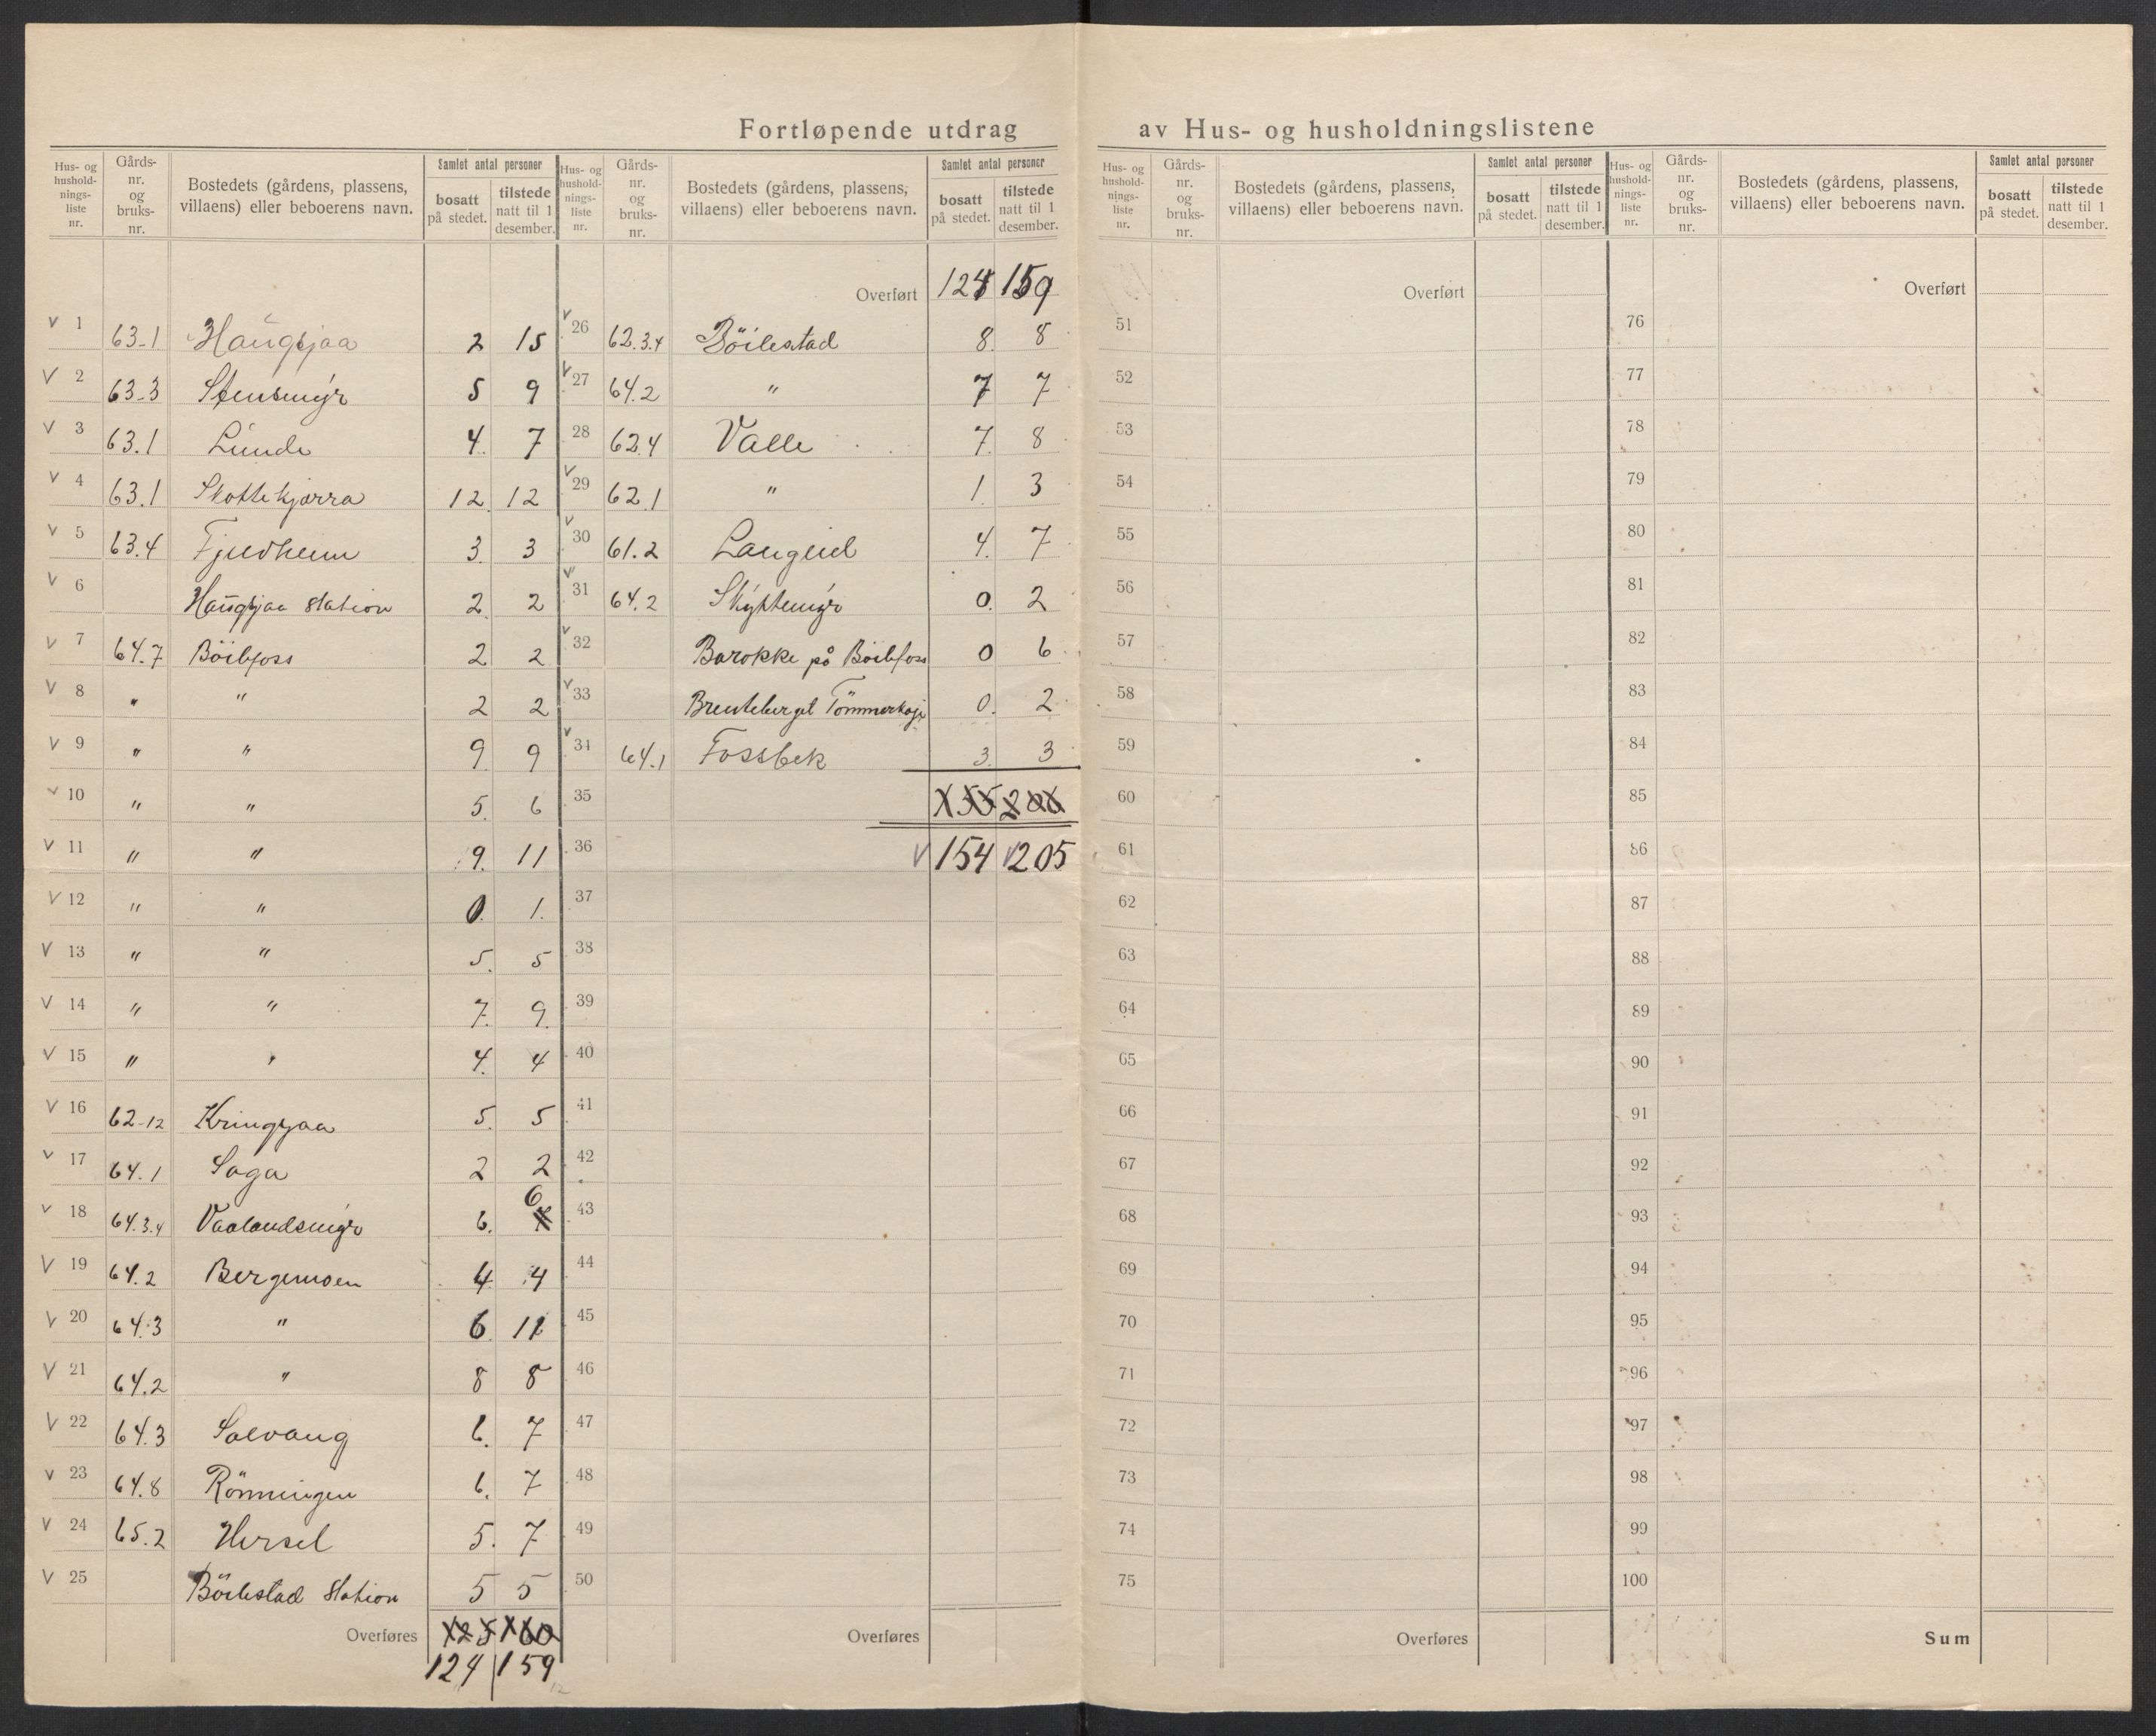 Fortløpende utdrag av Hus- og husholdningslistene
Hus- og husholdningsliste nr. | Gårds-nr. og bruks-nr. | Bostedets (gårdens, plassens, villaens) eller beboerens navn. | Samlet antal personer | bosatt på stedet. | tilstede natt til 1 desember.
v 1 63-1 Haugsjaa 2 15
v 2 63-3 Stensmyr 5 9
v 3 63.1 Lunde 4. 7
v 4 63.1 Skottekjærra 12. 12
v 5 63.4 Fjeldheim 3. 3
v 6 Haugsjaa station 2. 2
v 7 64.7 Böilefoss 2 2
v 8 " " 2 2
v 9 " " 9. 9
v 10 " " 5. 6
v 11 " " 9. 11
v 12 " " 0. 1.
v 13 " " 5. 5
v 14 " " 7. 9.
v 15 " " 4. 4
v 16 62-12 Kringsjaa 5. 5
v 17 64.1 Saga 2 2
v 18 64.3.4 Vaalandsmyr 6. 6
v 19 64.2 Bergemoen 4. 4
v 20 64.3 " 6. 11
v 21 64.2 " 8 8
v 22 64.3 Solvang 6. 7
v 23 64.8 Rönningen 6. 7
v 24 65.2 Hersel 5. 7
v 25 Böilestad Station 5 5
Overføres 125 160
124 159
Hus- og husholdningsliste nr. | Gårds-nr. og bruks-nr. | Bostedets (gårdens, plassens, villaens) eller beboerens navn. | Samlet antal personer | bosatt på stedet. | tilstede natt til 1 desember.
Overført 124 159
v 26 62.3.4 Böilestad 8. 8
v 27 64.2 " 7 7
28 62.4 Valle 7. 8
v 29 62.1 " 1. 3
v 30 61.2 Laugeid 4. 7
v 31 64.2 Skyttemyr 0. 2
v 32 Barokke på Böilefoss 0 6
v 33 Brenteberget Tömmerkoje 0. 2
v 34 64.1 Fossbek 3. 3
35 155 206
36 v 154 v 205
37
38
39
40
41
42
43
44
45
46
47
48
49
50
Overføres
Hus- og husholdningsliste nr. | Gårds-nr. og bruks-nr. | Bostedets (gårdens, plassens, villaens) eller beboerens navn. | Samlet antal personer | bosatt på stedet. | tilstede natt til 1 desember.
Overført
51
52
53
54
55
56
57
58
59
60
61
62
63
64
65
66
67
68
69
70
71
72
73
74
75
Overføres
Hus- og husholdningsliste nr. | Gårds-nr. og bruks-nr. | Bostedets (gårdens, plassens, villaens) eller beboerens navn. | Samlet antal personer | bosatt på stedet. | tilstede natt til 1 desember.
Overført
76
77
78
79
80
81
82
83
84
85
86
87
88
89
90
91
92
93
94
95
96
97
98
99
100
Sum